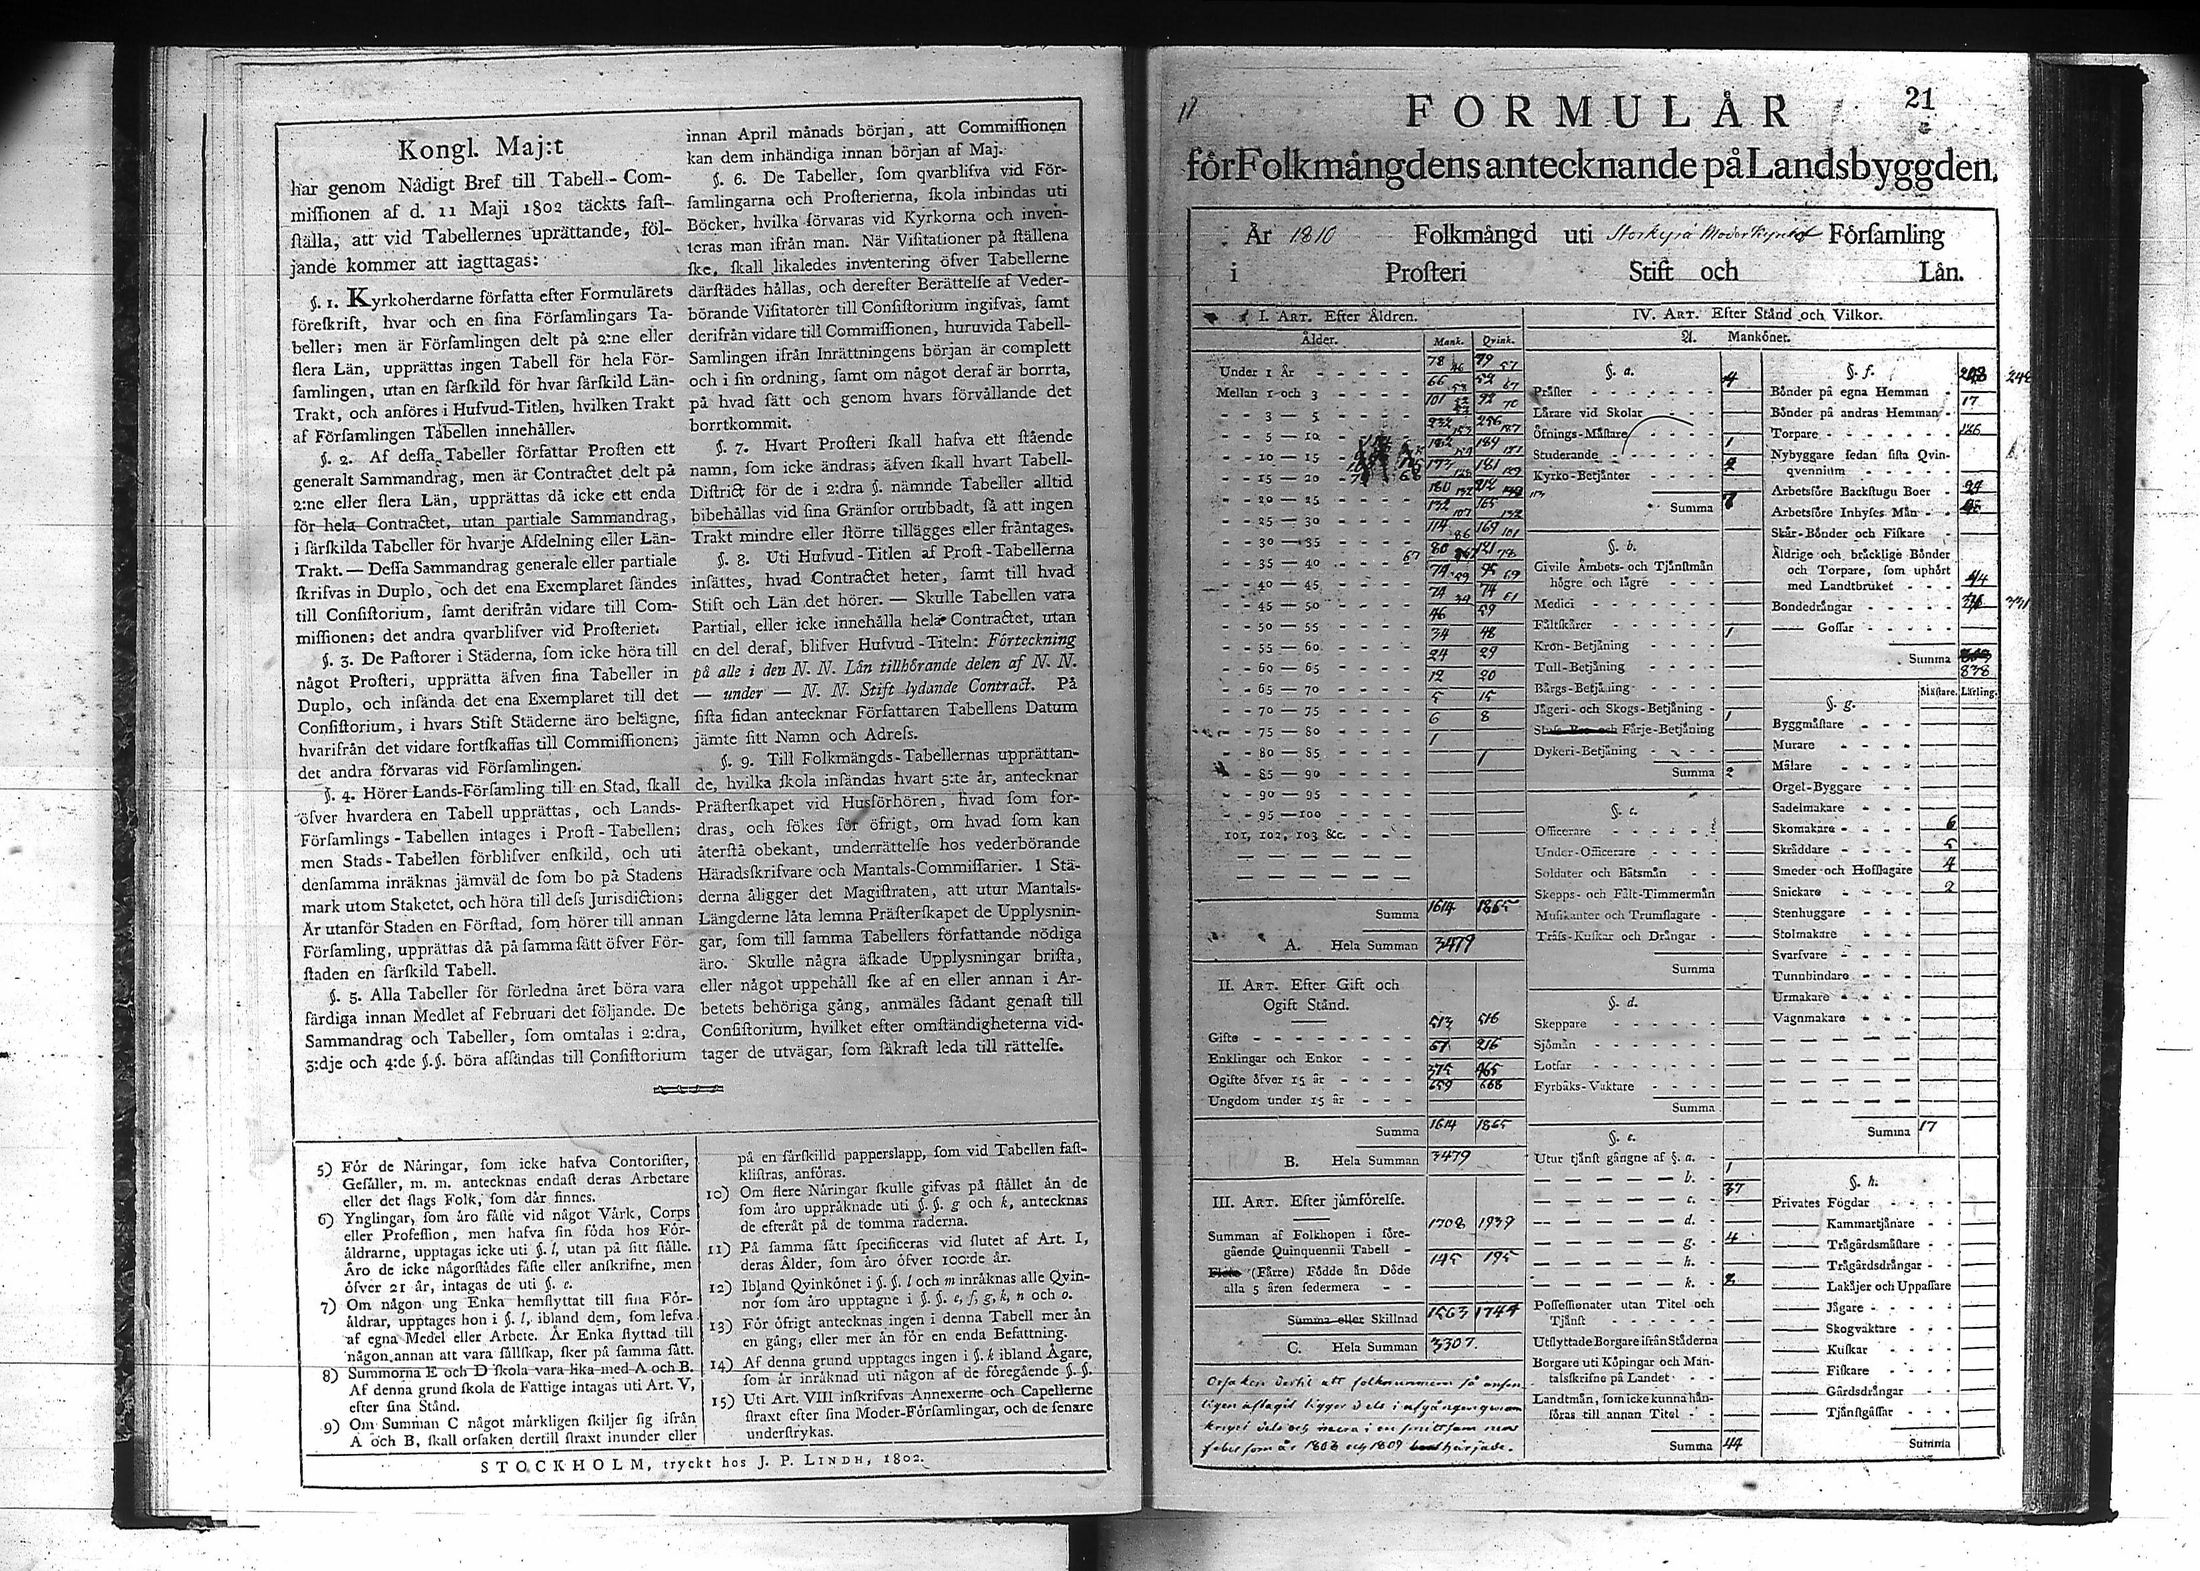 Kongl. Maj:t
har genom Nådigt Bref till Tabell-Com-
missionen af d. 11 Maji 1802 täckts fast-
ställa, att vid Tabellernes uprättande, föl-
jande kommer att iagttagas:
§. 1. Kyrkoherdarne författa efter Formulärets
föreskrift, hvar och en sina Församlingars Ta-
beller; men är Församlingen delt på 2:ne eller
flera Län, upprättas ingen Tabell för hela För-
samlingen, utan en särskild för hvar särskild Län-
Trakt, och anföres i Hufvud-Titlen, hvilken Trakt
af Församlingen Tabellen innehåller.
§. 2. Af dessa Tabeller författar Prosten ett
generalt Sammandrag, men är Contractet delt på
2:ne eller flera Län, upprättas då icke ett enda
för hela Contractet, utan partiale Sammandrag,
i särskilda Tabeller för hvarje Afdelning eller Län-
Trakt. — Dessa Sammandrag generale eller partiale
skrifvas in Duplo, och det ena Exemplaret sändes
till Consistorium, samt derifrån vidare till Com-
missionen; det andra qvarblifver vid Prosteriet.
§. 3. De Pastorer i Städerna, som icke höra till
något Prosteri, upprätta äfven sina Tabeller in
Duplo, och insända det ena Exemplaret till det
Consistorium, i hvars Stift Städerne äro belägne,
hvarifrån det vidare fortskaffas till Commissionen;
det andra förvaras vid Församlingen.
§. 4. Hörer Lands-Församling till en Stad, skall
öfver hvardera en Tabell upprättas, och Lands-
Församlings-Tabellen intages i Prost-Tabellen;
men Stads-Tabellen förblifver enskild, och uti
densamma inräknas jämväl de som bo på Stadens
mark utom Staketet, och höra till dess Jurisdiction;
Är utanför Staden en Förstad, som hörer till annan
Församling, upprättas då på samma sätt öfver För-
staden en särskild Tabell.
§. 5. Alla Tabeller för förledna året böra vara
färdiga innan Medlet af Februari det följande. De
Sammandrag och Tabeller, som omtalas i 2:dra,
3:dje och 4:de §.§. böra afsändas till Consistorium
innan April månads början, att Commissionen
kan dem inhändiga innan början af Maj.
§. 6. De Tabeller, som qvarblifva vid För-
samlingarna och Prosterierna, skola inbindas uti
Böcker, hvilka förvaras vid Kyrkorna och inven-
teras man ifrån man. När Visitationer på ställena
ske, skall likaledes inventering öfver Tabellerne
därstädes hållas, och derefter Berättelse af Veder-
börande Visitatorer till Consistorium ingifvas, samt
derifrån vidare till Commissionen, huruvida Tabell-
Samlingen ifrån Inrättningens början är complett
och i sin ordning, samt om något deraf är borrta,
på hvad sätt och genom hvars förvållande det
borrtkommit.
§. 7. Hvart Prosteri skall hafva ett stående
namn, som icke ändras; äfven skall hvart Tabell-
District för de i 2:dra §. nämnde Tabeller alltid
bibehållas vid sina Gränsor orubbadt, så att ingen
Trakt mindre eller större tillägges eller fråntages.
§. 8. Uti Hufvud-Titlen af Prost-Tabellerna
insättes, hvad Contractet heter, samt till hvad
Stift och Län det hörer. — Skulle Tabellen vara
Partial, eller icke innehålla hela Contractet, utan
en del deraf, blifver Hufvud-Titeln: Förteckning
på alle i den N. N. Län tillhörande delen af N. N.
— under — N. N. Stift lydande Contract. På
sista sidan antecknar Författaren Tabellens Datum
jämte sitt Namn och Adress.
§. 9. Till Folkmängds-Tabellernas upprättan-
de, hvilka skola insändas hvart 5:te år, antecknar
Prästerskapet vid Husförhören, hvad som for-
dras, och sökes för öfrigt, om hvad som kan
återstå obekant, underrättelse hos vederbörande
Häradsskrifvare och Mantals-Commissarier. I Stä-
derna åligger det Magistraten, att utur Mantals-
Längderne låta lemna Prästerskapet de Upplysnin-
gar, som till samma Tabellers författande nödiga
äro. Skulle några äskade Upplysningar brista,
eller något uppehåll ske af en eller annan i Ar-
betets behöriga gång, anmäles sådant genast till
Consistorium, hvilket efter omständigheterna vid-
tager de utvägar, som säkrast leda till rättelse.
5) För de Näringar, som icke hafva Contorister,
Gesäller, m. m. antecknas endast deras Arbetare
eller det slags Folk, som där finnes.
6) Ynglingar, som äro fäste vid något Värk, Corps
eller Profession, men hafva sin föda hos För-
äldrarne, upptagas icke uti §. l, utan på sitt ställe.
Äro de icke någorstädes fäste eller anskrifne, men
öfver 21 år, intagas de uti §. e.
7) Om någon ung Enka hemflyttat till sina För-
äldrar, upptages hon i §. l, ibland dem, som lefva
af egna Medel eller Arbete. Är Enka flyttad till
någon annan att vara sällskap, sker på samma sätt.
8) Summorna E och D skola vara lika med A och B.
Af denna grund skola de Fattige intagas uti Art. V,
efter sina Stånd.
9) Om Summan C något märkligen skiljer sig ifrån
A och B, skall orsaken dertill straxt inunder eller
på en särskild papperslapp, som vid Tabellen fast-
klistras, anföras.
10) Om flere Näringar skulle gifvas på stället än de
som äro uppräknade uti §. §. g och k, antecknas
de efteråt på de tomma raderna.
11) På samma sätt specificeras vid slutet af Art. I,
deras Ålder, som äro öfver 100:de år.
12) Ibland Qvinkönet i §. §. l och m inräknas alle Qvin-
nor som äro upptagne i §. §. e, f, g, k, n och o.
13) För öfrigt antecknas ingen i denna Tabell mer än
en gång, eller mer än för en enda Befattning.
14) Af denna grund upptages ingen i §. k ibland Ägare,
som är inräknad uti någon af de föregående §. §.
15) Uti Art. VIII inskrifvas Annexerne och Capellerne
straxt efter sina Moder-Församlingar, och de senare
understrykas.
STOCKHOLM, tryckt hos J. P. LINDH, 1802.
11
21
FORMULÄR
för Folkmängdens antecknande på Landsbyggden.
År 1810 Folkmängd uti Storkyro Moderkyrko Församling
i Prosteri Stift och Län.
I. ART. Efter Åldren.
Ålder. Mank. Qvink.
Under 1 År 78 79
Mellan 1 och 3 66 59
3 — 5 101 92
5 — 10 232 256
10 — 15 182 184
15 — 20 177 181
20 — 25 160 212
25 — 30 132 165
30 — 35 114 169
35 — 40 80 121
40 — 45 74 95
45 — 50 74 74
50 — 55 46 59
55 — 60 34 48
60 — 65 24 29
65 — 70 12 20
70 — 75 5 15
75 — 80 6 8
80 — 85 1
85 — 90 1
90 — 95
95 — 100
101, 102, 103 &c.
Summa 1614 1865
A. Hela Summan 3479
II. ART. Efter Gift och
Ogift Stånd.
Gifte 513 516
Enklingar och Enkor 67 216
Ogifte öfver 15 år 375 465
Ungdom under 15 år 659 668
Summa 1614 1865
B. Hela Summan 3479
III. ART. Efter jämförelse.
Summan af Folkhopen i före-
gående Quinquennii Tabell 1708 1939
Flere (Färre) Födde än Döde
alla 5 åren sedermera 145 195
Summa eller Skillnad 1563 1744
C. Hela Summan 3307.
Orsaken dertil att folknummern så ansen-
ligen aftagit ligger dels i afgången genom
kriget dels och mera i en smittsam nerv
feber som år 1808 och 1809 härjade.
IV. ART. Efter Stånd och Vilkor.
A. Mankönet.
§. a.
Präster 4
Lärare vid Skolar
Öfnings-Mästare
Studerande 1
Kyrko-Betjänter 2
Summa 7
§. b.
Civile Ämbets- och Tjänstmän
högre och lägre
Medici
Fältskärer
Kron-Betjäning 1
Tull-Betjäning
Bärgs-Betjäning
Jägeri- och Skogs-Betjäning
Sluss- Bro- och Färje-Betjäning 1
Dykeri-Betjäning
Summa 2
§. c.
Officerare
Under-Officerare
Soldater och Båtsmän
Skepps- och Fält-Timmermän
Musikanter och Trumslagare
Träss-Kuskar och Drängar
Summa
§. d.
Skeppare
Sjömän
Lotsar
Fyrbåks-Vaktare
Summa
§. e.
Utur tjänst gångne af §. a. 1
b. 37
c.
d.
g. 4
h.
k. 2
Possessionater utan Titel och
Tjänst
Utflyttade Borgare ifrån Städerna
Borgare uti Köpingar och Man-
talsskrifne på Landet
Landtmän, som icke kunna hän-
föras till annan Titel
Summa 44
§. f.
Bönder på egna Hemman 248
Bönder på andras Hemman 17
Torpare 126
Nybyggare sedan sista Qvin-
qvennium
Arbetsföre Backstugu Boer
Arbetsföre Inhyses Män
Skär-Bönder och Fiskare
Äldrige och bräcklige Bönder
och Torpare, som uphört
med Landtbruket
Bondedrängar 331
Gossar
Summa 838
Mästare. Lärling.
§. g.
Byggmästare
Murare
Målare
Orgel-Byggare
Sadelmakare
Skomakare 6
Skräddare 5
Smeder och Hofslagare 4
Snickare 2
Stenhuggare
Stolmakare
Svarfvare
Tunnbindare
Urmakare
Vagnmakare
Summa 17
§. h.
Privates Fogdar
Kammartjänare
Trägårdsmästare
Trägårdsdrängar
Lakäjer och Uppassare
Jägare
Skogvaktare
Kuskar
Fiskare
Gårdsdrängar
Tjänstgässar
Summa